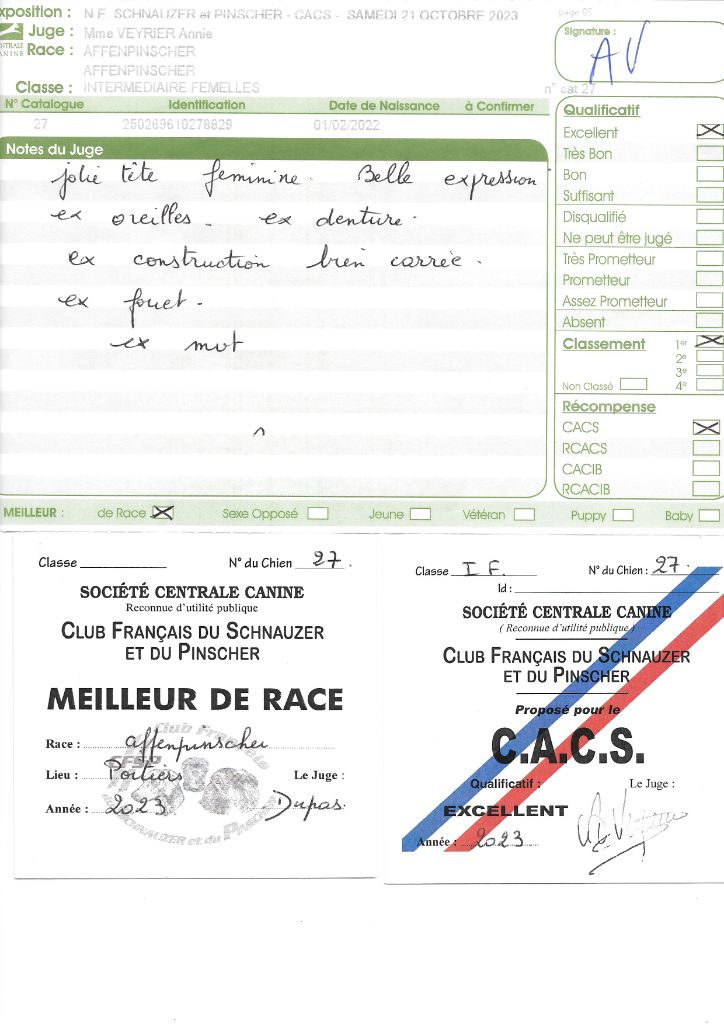 xposition : N.E. SCHNAUZER et PINSCHER - CACS - SAMEDI 21 OCTOBRE 2023 page 65
Juge : Mme VEYRIER Annie
CENTRALE
CANINE
Race : AFFENPINSCHER
AFFENPINSCHER
Classe : INTERMEDIAIRE FEMELLES
n° cat 27
Signature :
AV
N° Catalogue Identification Date de Naissance à Confirmer
27 250269610278829 01/02/2022
Notes du Juge
jolie tête féminine. Belle expression
ex oreilles. ex denture.
ex construction bien carrée.
ex fouet.
ex mvt
Qualificatif
Excellent
Très Bon
Bon
Suffisant
Disqualifié
Ne peut être jugé
Très Prometteur
Prometteur
Assez Prometteur
Absent
Classement 1er
2e
3e
Non Classé 4e
Récompense
CACS
RCACS
CACIB
RCACIB
MEILLEUR : de Race Sexe Opposé Jeune Vétéran Puppy Baby
Classe N° du Chien : 27.
SOCIÉTÉ CENTRALE CANINE
Reconnue d'utilité publique
CLUB FRANÇAIS DU SCHNAUZER
ET DU PINSCHER
MEILLEUR DE RACE
Race : affenpinscher
Lieu : Poitiers Le Juge :
Année : 2023 Dupas.
Club Français
SCHNAUZER et du PINSCHER
Classe I F. N° du Chien : 27.
Id :
SOCIÉTÉ CENTRALE CANINE
( Reconnue d'utilité publique )
CLUB FRANÇAIS DU SCHNAUZER
ET DU PINSCHER
Proposé pour le
C.A.C.S.
Qualificatif : Le Juge :
EXCELLENT
Année : 2023